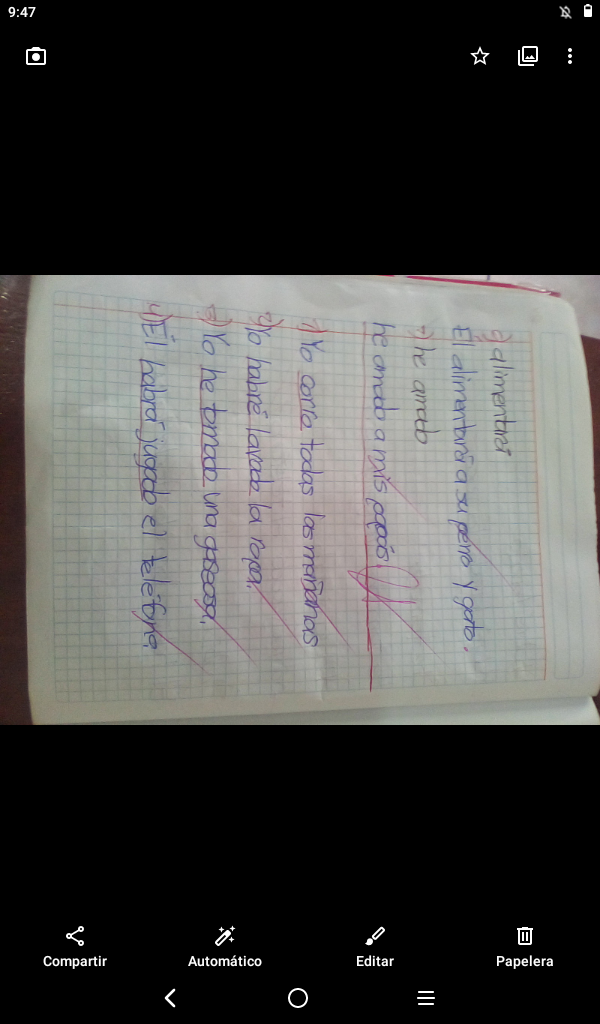 9:47
alimentar
Él alimentará a su perro y gato.
he amado
he amado a mis papás
1) Yo corro todas las mañanas
2) Yo habré lavado la ropa.
3) Yo he tomado una gaseosa.
4) Él habrá jugado el teléfono.
Compartir
Automático
Editar
Papelera